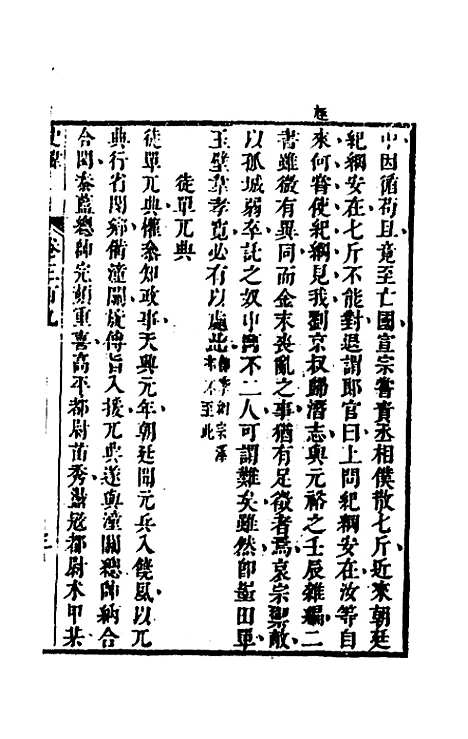 中因循苟且竟至亡國宣宗嘗責丞相僕散七斤近來朝廷
紀綱安在七斤不能對退謂郎官曰上問紀綱安在汝等自
來何嘗使紀綱見我劉京叔歸潛志與元裕之壬辰雜編二
書雖微有異同而金末喪亂之事猶有足徵者焉哀宗禦敵
以孤城弱卒託之奴申阿不二人可謂難矣雖然即墨田單
玉壁韋孝寬必有以處此
徒單兀典
徒單兀典權參知政事天興元年朝廷聞元兵入饒風以兀
典行省閿鄉備潼關旋傳旨入援兀典遂與潼關總帥納合
合閏秦藍總帥完顏重喜高平都尉苗秀蕩寇都尉朮甲某
卷三百九